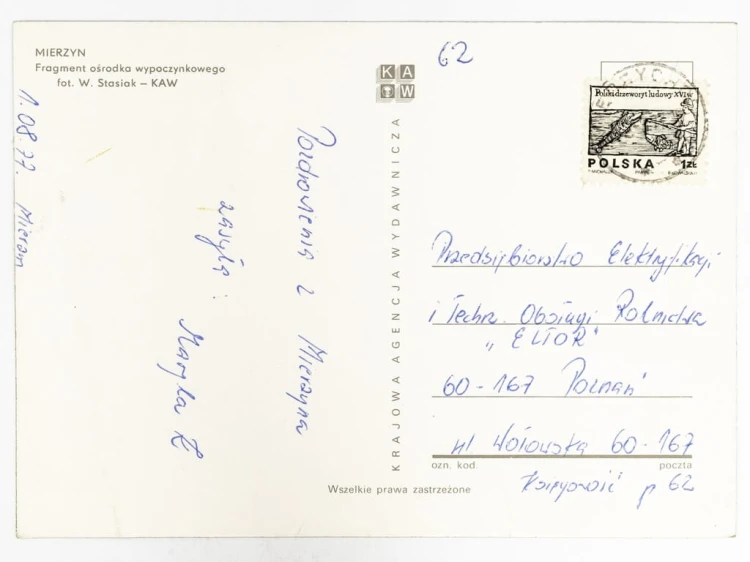 MIERZYN
Fragment ośrodka wypoczynkowego
fot. W. Stasiak – KAW
62
K A
W
1.08.77. Mierzyn
Pozdrowienia z Mierzyna
zasyła:
Maryla K
KRAJOWA AGENCJA WYDAWNICZA
Polski drzeworyt ludowy XVI w
POLSKA 1 ZŁ
Przedsiębiorstwo Elektryfikacji
i Techn. Obsługi Rolnictwa
„ELTOR"
60-167 Poznań
ul Wołowska 60-167
ozn. kod. poczta
Księgowość p 62
Wszelkie prawa zastrzeżone